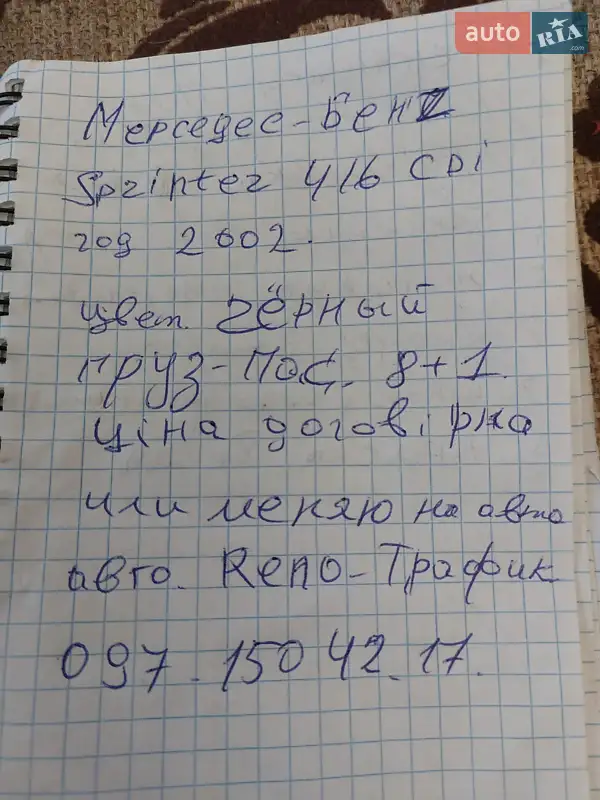 auto RIA .com
Мерседес-Бенz
Sprinter 416 CDi
год 2002.
цвет. чёрный
груз-Пос. 8+1.
ціна договірна
или меняю на авто
авто. Reno-Трафик
097.150 42.17.